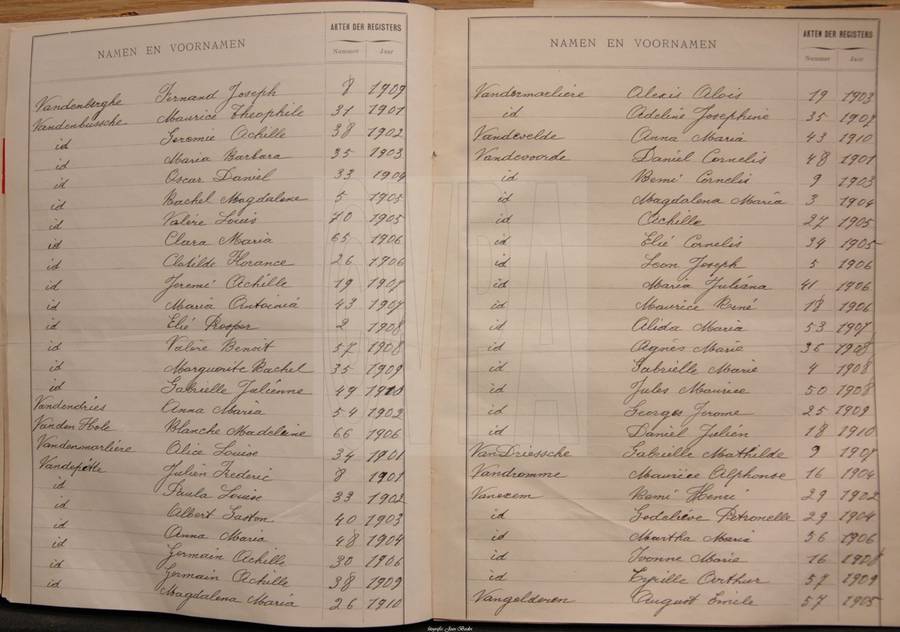 NAMEN EN VOORNAMEN AKTEN DER REGISTERS
Nummer Jaar
Vandenberghe Fernand Joseph 8 1909
Vandenbussche Maurice Theophile 31 1901
id Jeromie Achille 38 1902
id Maria Barbara 35 1903
id Oscar Daniel 33 1904
id Rachel Magdalene 5 1905
id Valère Louis 70 1905
id Clara Maria 65 1906
id Clotilde Florance 26 1906
id Jeremi Achille 19 1907
id Maria Antoinia 43 1907
id Elié Prosper 2 1908
id Valère Benoit 57 1908
id Marguerite Rachel 35 1909
id Gabrielle Julienne 49 1910
Vandendries Anna Maria 54 1902
Vanden Hole Blanche Madeleine 66 1906
Vandenmarliere Alice Louise 34 1901
Vandepitte Julien Frederic 8 1901
id Paula Louise 33 1902
id Albert Gaston 40 1903
id Anna Maria 48 1904
id Germain Achille 30 1906
id Germain Achille 38 1909
id Magdalena Maria 26 1910
NAMEN EN VOORNAMEN AKTEN DER REGISTERS
Nummer Jaar
Vandermarliere Alexis Alois 19 1903
id Adeline Josephine 35 1907
Vandevelde Anna Maria 43 1910
Vandevoorde Daniel Cornelis 48 1901
id Remi Cornelis 9 1903
id Magdalena Maria 3 1904
id Achille 27 1905
id Elié Cornelis 34 1905
id Leon Joseph 5 1906
id Maria Juliana 41 1906
id Maurice René 18 1906
id Alida Maria 53 1907
id Agnès Marie 36 1908
id Gabrielle Marie 4 1908
id Jules Maurice 50 1908
id Georges Jerome 25 1909
id Daniel Julien 18 1910
VanDriessche Gabrielle Mathilde 9 1907
Vandromme Maurice Alphonse 16 1904
Vanexem Remi Henri 29 1902
id Godelieve Petronelle 29 1904
id Martha Maria 56 1906
id Ivonne Marie 16 1908
id Cyrille Arthur 57 1909
Vangelderen August Emile 57 1905